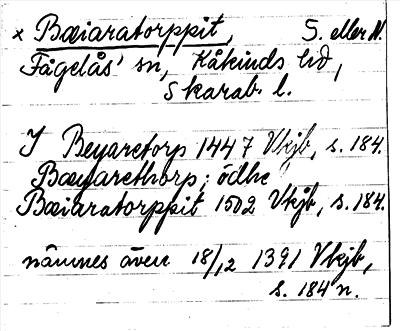 x Bæiaratorppit, S. eller N.
Fågelås' sn, Kåkinds hd,
Skarab. l.
I Beyaretorp 1447 Vkjb, s. 184.
Bæyarethorp; ödhe
Bæiaratorppit 1502 Vkjb, s. 184.
nämnes även 18/12 1391 Vkjb,
s. 184 n.